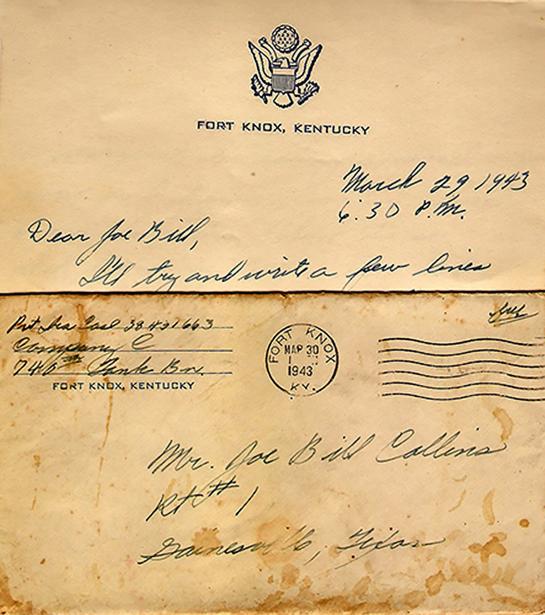 FORT KNOX, KENTUCKY
March 29 1943
6:30 P.M.
Dear Joe Bill,
I'll try and write a few lines
Pvt. Ira Casl 38431663
Company C
740th Tank Bn.
FORT KNOX, KENTUCKY
FORT KNOX
MAR 30
1
1943
KY.
Free
Mr. Joe Bill Collins
Rt # 1
Gainesville, Texas